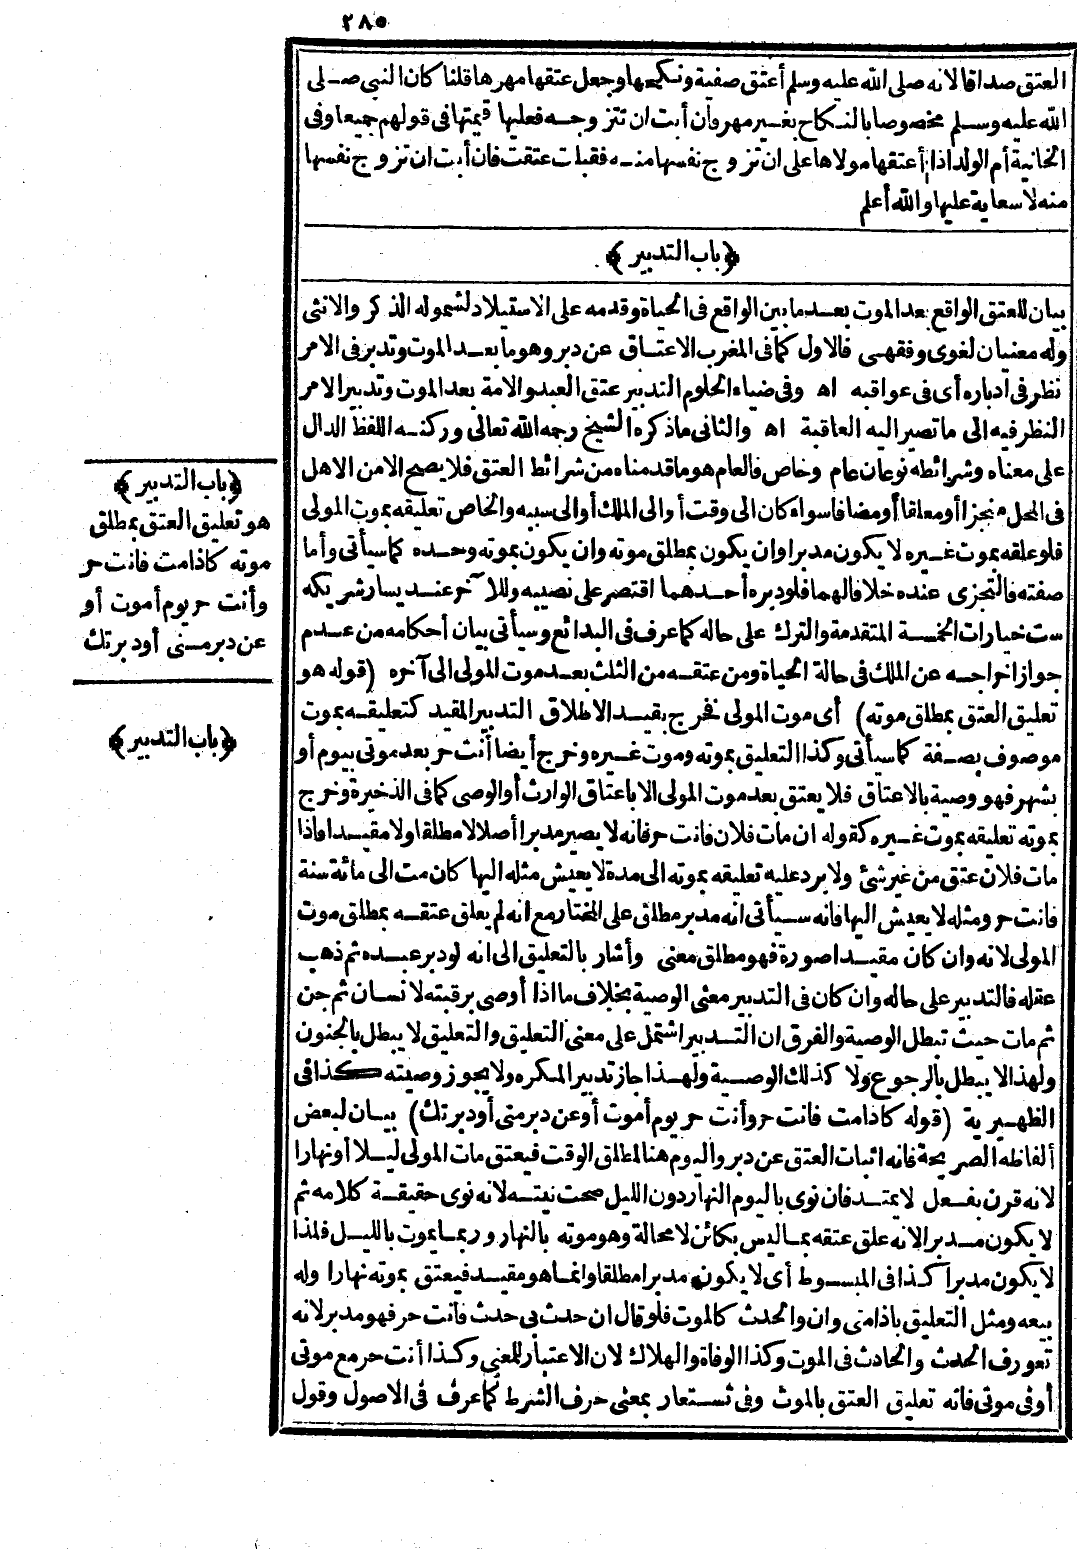 ٢٨٥
العتق صداقا لانه صلى الله عليه وسلم أعتق صفية ونكحها وجعل عتقها مهرها قلنا كان النبى صلى
الله عليه وسلم مخصوصا بالنكاح بغير مهر وان أبت ان تتزوجه فعليها قيمتها فى قولهم جميعا وفى
الخانية أم الولد اذا أعتقها مولاها على ان تزوج نفسها منه فقبلت عتقت فان أبت ان تزوج نفسها
منه لا سعاية عليها والله أعلم
﴿باب التدبير﴾
بيان للعتق الواقع بعد الموت بعد ما بين الواقع فى الحياة وقدمه على الاستيلاد لشموله الذكر والانثى
وله معنيان لغوى وفقهى فالاول كما فى المغرب الاعتاق عن دبر وهو ما بعد الموت وتدبر فى الامر
نظر فى ادباره أى فى عواقبه اه وفى ضياء الحلوم التدبير عتق العبد والامة بعد الموت وتدبير الامر
النظر فيه الى ما تصير اليه العاقبة اه والثانى ما ذكره الشيخ رحمه الله تعالى وركنه اللفظ الدال
على معناه وشرائطه نوعان عام وخاص فالعام هو ما قدمناه من شرائط العتق فلا يصح الا من الاهل
فى المحل منجزا أو معلقا أو مضافا سواء كان الى وقت أو الى الملك أو الى سببه والخاص تعليقه بموت المولى
فلو علقه بموت غيره لا يكون مدبرا وان يكون بمطلق موته وان يكون بموته وحده كما سيأتى وأما
صفته فالتجزى عنده خلافا لهما فلو دبره أحدهما اقتصر على نصيبه وللآخر عند يسار شريكه
ست خيارات الخمسة المتقدمة والترك على حاله كما عرف فى البدائع وسيأتى بيان أحكامه من عدم
جواز اخراجه عن الملك فى حالة الحياة ومن عتقه من الثلث بعد موت المولى الى آخره (قوله هو
تعليق العتق بمطلق موته) أى موت المولى فخرج بقيد الاطلاق التدبير المقيد كتعليقه بموت
موصوف بصفة كما سيأتى وكذا التعليق بموته وموت غيره وخرج أيضا أنت حر بعد موتى بيوم أو
بشهر فهو وصية بالاعتاق فلا يعتق بعد موت المولى الا باعتاق الوارث أو الوصى كما فى الذخيرة وخرج
بموته تعليقه بموت غيره كقوله ان مات فلان فانت حر فانه لا يصير مدبرا أصلا لا مطلقا ولا مقيدا فاذا
مات فلان عتق من غير شئ ولا يرد عليه تعليقه بموته الى مدة لا يعيش مثله اليها كان مت الى مائة سنة
فانت حر ومثله لا يعيش اليها فانه سيأتى انه مدبر مطلق على المختار مع انه لم يعلق عتقه بمطلق موت
المولى لانه وان كان مقيدا صورة فهو مطلق معنى وأشار بالتعليق الى انه لو دبر عبده ثم ذهب
عقله فالتدبير على حاله وان كان فى التدبير معنى الوصية بخلاف ما اذا أوصى برقبته لانسان ثم جن
ثم مات حيث تبطل الوصية والفرق ان التدبير اشتمل على معنى التعليق والتعليق لا يبطل بالجنون
ولهذا لا يبطل بالرجوع ولا كذلك الوصية ولهذا جاز تدبير المكره ولا يجوز وصيته كذا فى
الظهيرية (قوله كاذا مت فانت حر وأنت حر يوم أموت أو عن دبر منى أو دبرتك) بيان لبعض
ألفاظه الصريحة فانه اثبات العتق عن دبر واليوم هنا لمطلق الوقت فيعتق مات المولى ليلا أو نهارا
لانه قرن بفعل لا يمتد فان نوى باليوم النهار دون الليل صحت نيته لانه نوى حقيقة كلامه ثم
لا يكون مدبرا لانه علق عتقه بما ليس بكائن لا محالة وهو موته بالنهار وربما يموت بالليل فلهذا
لا يكون مدبرا كذا فى المبسوط أى لا يكون مدبرا مطلقا وانما هو مقيد فيعتق بموته نهارا وله
بيعه ومثل التعليق باذا متى وان والحدث كالموت فلو قال ان حدث بى حدث فانت حر فهو مدبر لانه
تعورف الحدث والحادث فى الموت وكذا الوفاة والهلاك لان الاعتبار للمعنى وكذا أنت حر مع موتى
أو فى موتى فانه تعليق العتق بالموت وفى تستعار بمعنى حرف الشرط كما عرف فى الاصول وقول
﴿باب التدبير﴾
هو تعليق العتق بمطلق
موته كاذا مت فانت حر
وأنت حر يوم أموت أو
عن دبر منى أو دبرتك
﴿باب التدبير﴾